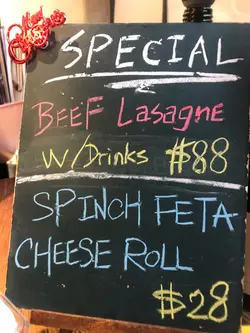 SPECIAL
BEEF Lasagne
W/Drinks $88
SPINCH FETA
CHEESE ROLL
$28